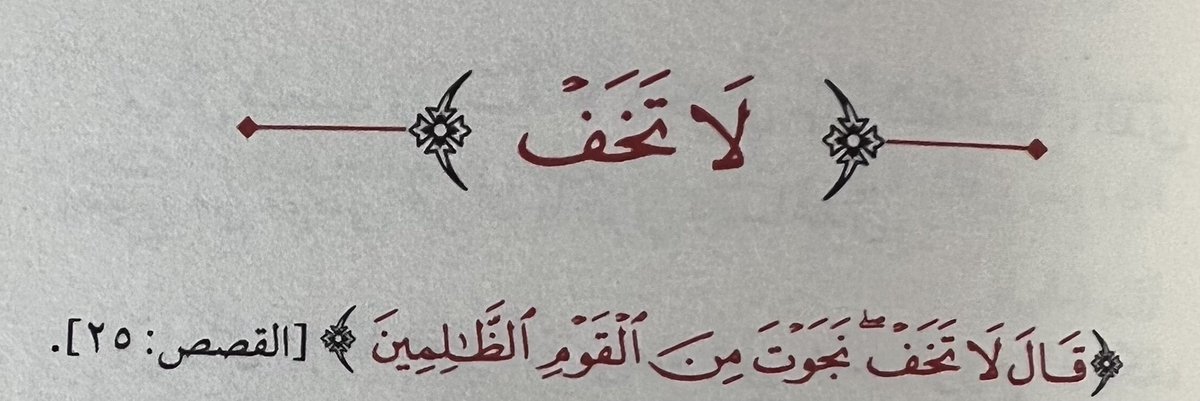 لَا تَخَفْ
﴿قَالَ لَا تَخَفْ ۖ نَجَوْتَ مِنَ ٱلْقَوْمِ ٱلظَّـٰلِمِينَ﴾ [القصص: ٢٥].